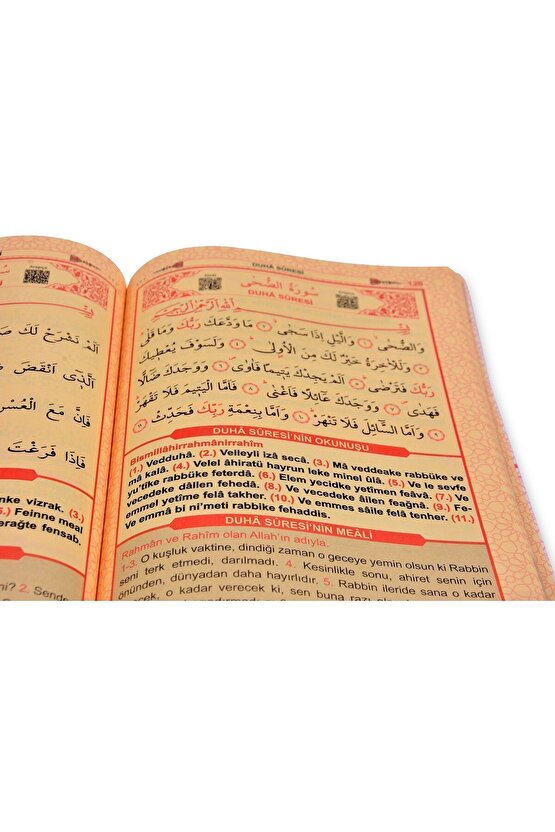 DUHÂ SÛRESİ
سُورَةُ الضُّحٰى
DUHÂ SÛRESİ
بِسْمِ اللّٰهِ الرَّحْمٰنِ الرَّح۪يمِ
وَالضُّحٰىۙ ﴿١﴾ وَالَّيْلِ اِذَا سَجٰىۙ ﴿٢﴾ مَا وَدَّعَكَ رَبُّكَ وَمَا قَلٰىۜ
﴿٣﴾ وَلَلْاٰخِرَةُ خَيْرٌ لَكَ مِنَ الْاُو۫لٰىۜ ﴿٤﴾ وَلَسَوْفَ يُعْط۪يكَ
رَبُّكَ فَتَرْضٰىۜ ﴿٥﴾ اَلَمْ يَجِدْكَ يَت۪يمًا فَاٰوٰىۖ ﴿٦﴾ وَوَجَدَكَ ضَٓالًّا
فَهَدٰىۖ ﴿٧﴾ وَوَجَدَكَ عَٓائِلًا فَاَغْنٰىۜ ﴿٨﴾ فَاَمَّا الْيَت۪يمَ فَلَا تَقْهَرْۜ
﴿٩﴾ وَاَمَّا السَّٓائِلَ فَلَا تَنْهَرْۜ ﴿١٠﴾ وَاَمَّا بِنِعْمَةِ رَبِّكَ فَحَدِّثْ ﴿١١﴾
DUHÂ SÛRESİ'NİN OKUNUŞU
Bismillâhirrahmânirrahîm
(1.) Vedduhâ. (2.) Velleyli izâ secâ. (3.) Mâ veddeake rabbüke ve
mâ kalâ. (4.) Velel âhiratü hayrun leke minel ûlâ. (5.) Ve le sevfe
yu'tîke rabbüke feterdâ. (6.) Elem yecidke yetîmen feâvâ. (7.) Ve
vecedeke dâllen fehedâ. (8.) Ve vecedeke âilen feağnâ. (9.) Fe-
emmel yetîme felâ takher. (10.) Ve emmes sâile felâ tenher. (11.)
Ve emmâ bi ni'meti rabbike fehaddis.
DUHÂ SÛRESİ'NİN MEÂLİ
Rahmân ve Rahîm olan Allah'ın adıyla.
1-3. O kuşluk vaktine, dindiği zaman o geceye yemin olsun ki Rabbin
seni terk etmedi, darılmadı. 4. Kesinlikle sonu, ahiret senin için
önünden, dünyadan daha hayırlıdır. 5. Rabbin ileride sana o kadar
verecek ki, sen buna razı
اَلَمْ نَشْرَحْ لَكَ
اَلَّذ۪ٓي اَنْقَضَ
فَاِنَّ مَعَ الْعُسْرِ
فَاِذَا فَرَغْتَ
vizrak. (3.)
Feinne meal
fensab.
2. Sende